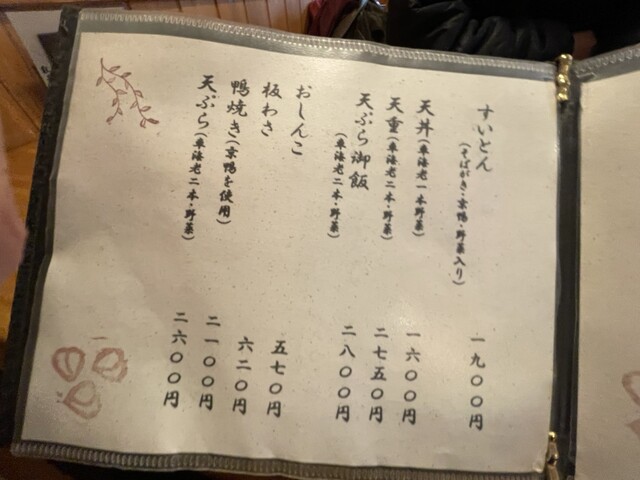 すいとん(そばがき・京鴨・野菜入り) 一九〇〇円
天丼(車海老一本野菜) 一六〇〇円
天重(車海老二本・野菜) 二七五〇円
天ぷら御飯(車海老二本・野菜) 二八〇〇円
おしんこ 五七〇円
板わさ 六二〇円
鴨焼き(京鴨を使用) 二一〇〇円
天ぷら(車海老二本・野菜) 二六〇〇円